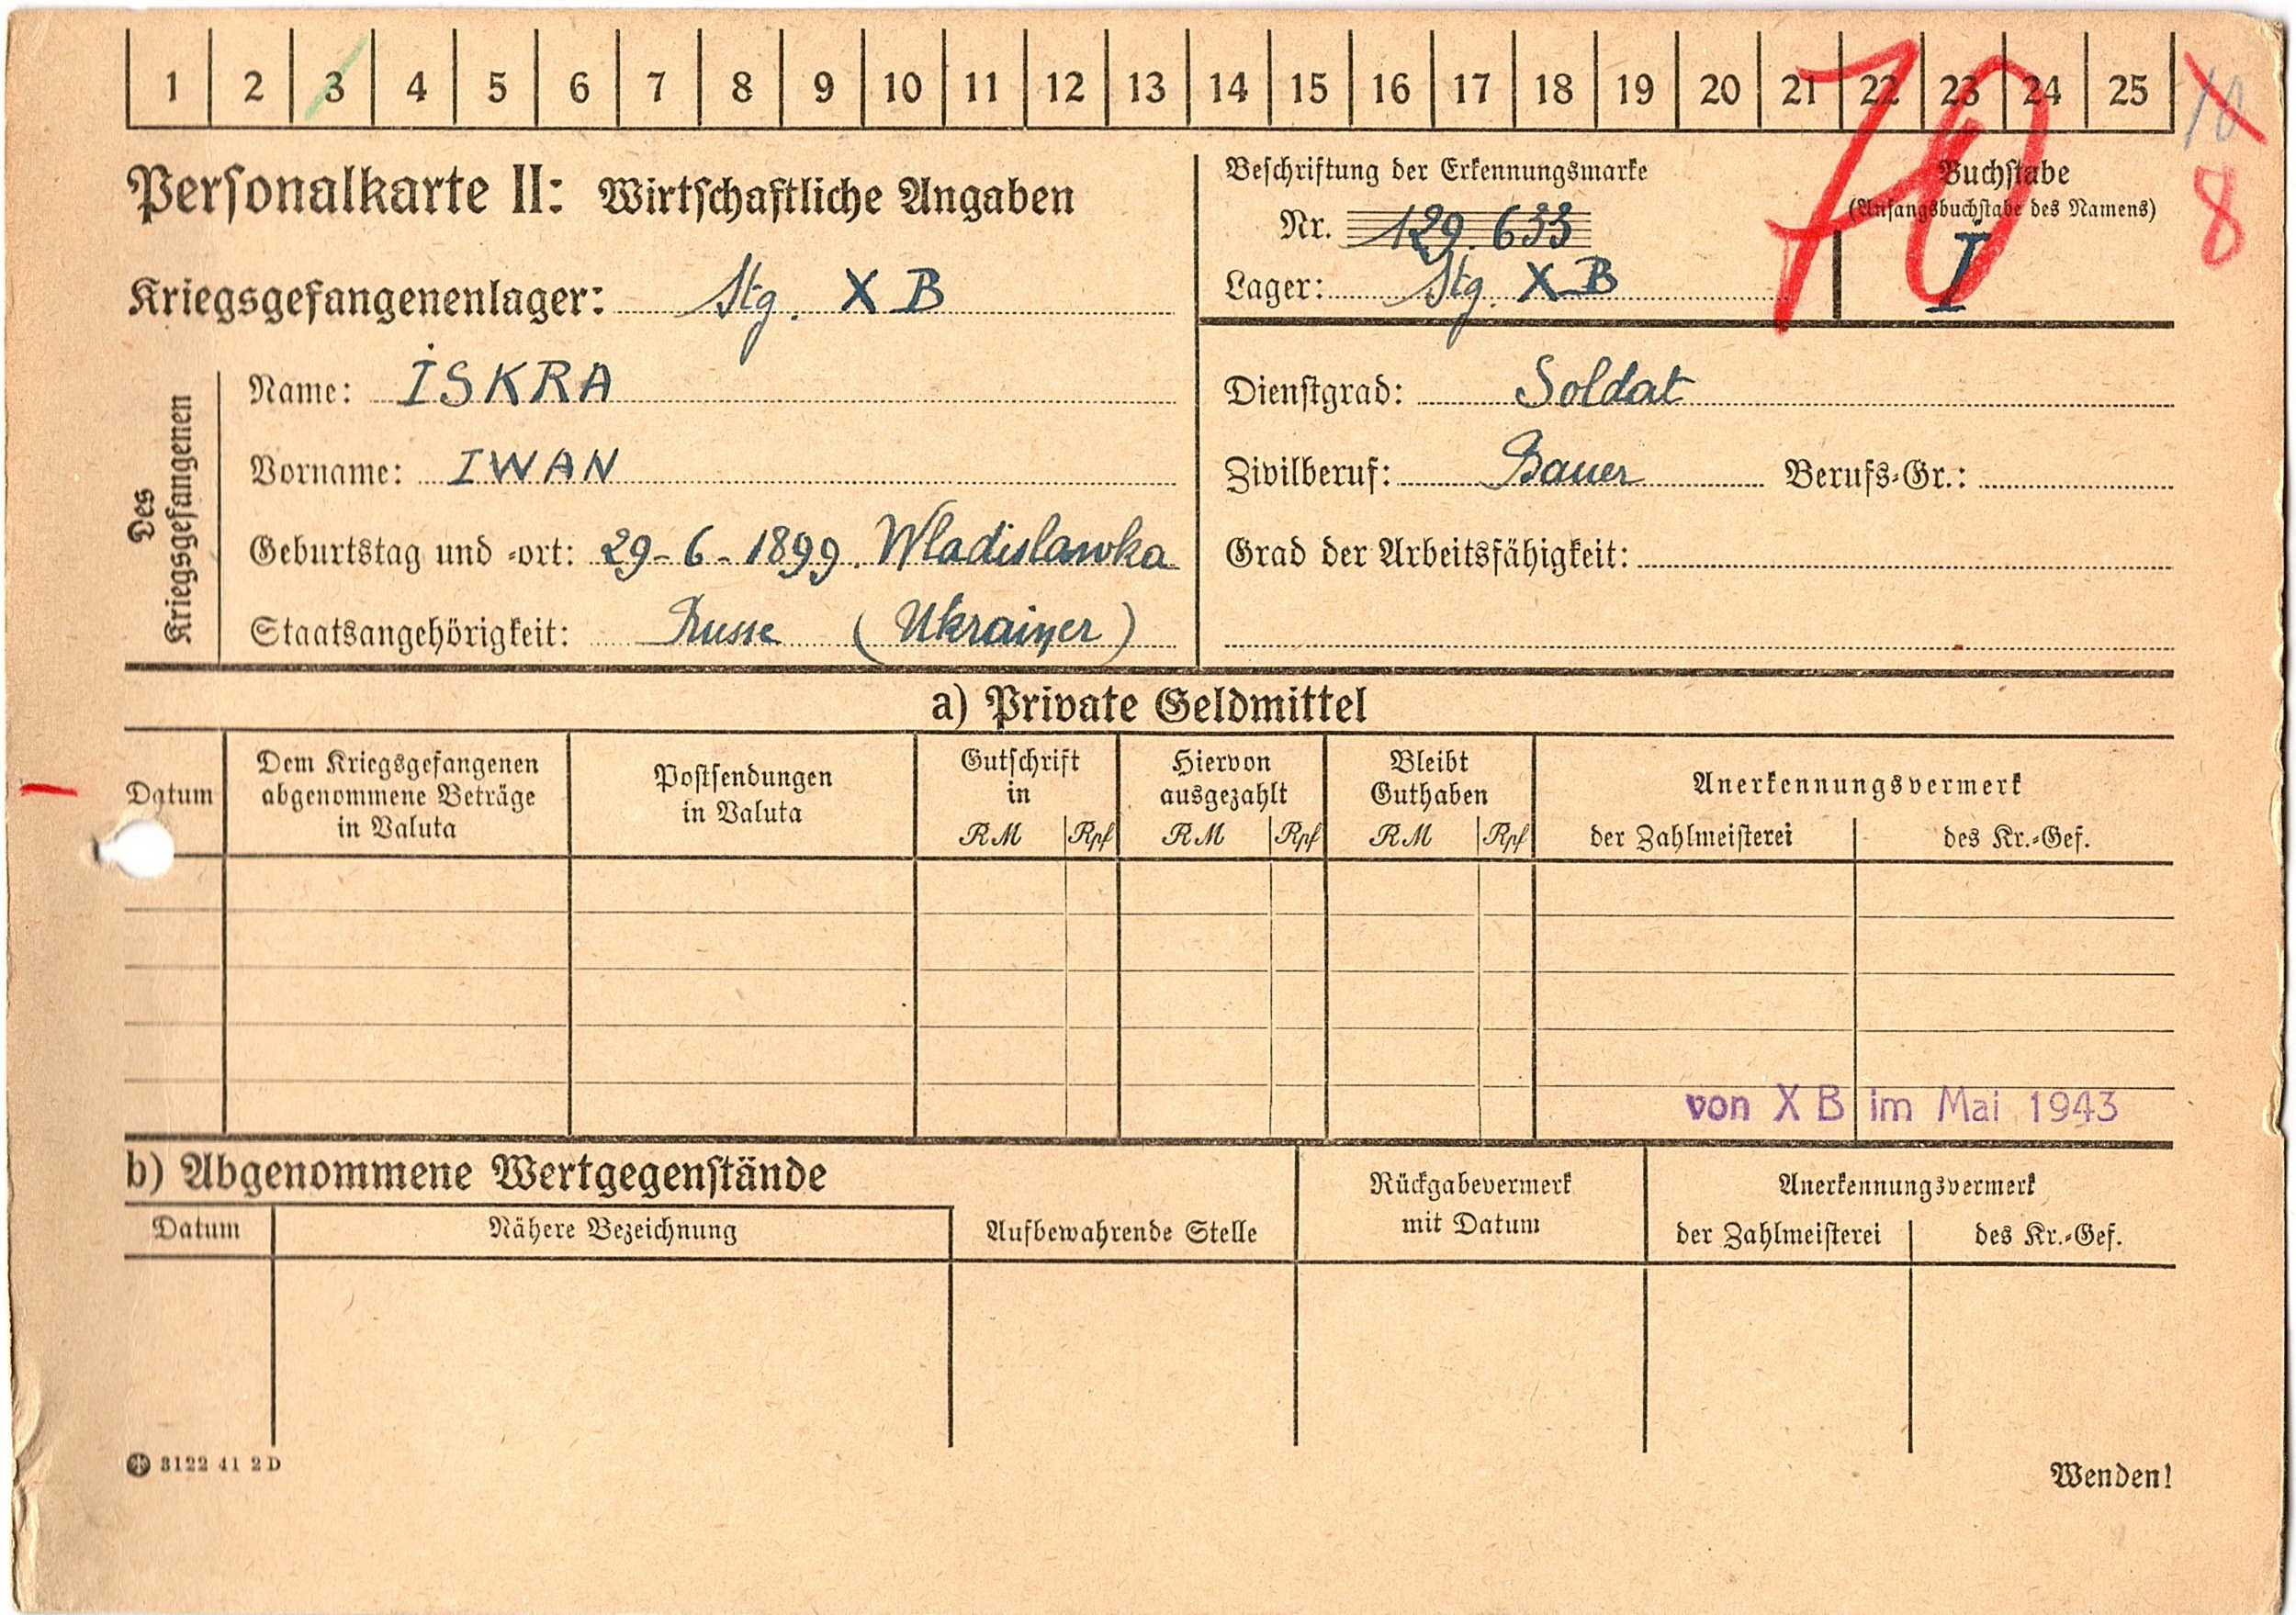 1 2 3 4 5 6 7 8 9 10 11 12 13 14 15 16 17 18 19 20 21 22 23 24 25 10
70
8
Personalkarte II: Wirtschaftliche Angaben
Kriegsgefangenenlager: Stg. X B
Beschriftung der Erkennungsmarke
Nr. 129.633
Lager: Stg. X B
Buchstabe
(Anfangsbuchstabe des Namens)
I
Des Kriegsgefangenen
Name: ISKRA
Vorname: IWAN
Geburtstag und -ort: 29-6-1899. Wladislawka
Staatsangehörigkeit: Russe (Ukrainer)
Dienstgrad: Soldat
Zivilberuf: Bauer Berufs-Gr.:
Grad der Arbeitsfähigkeit:
a) Private Geldmittel
Datum
Dem Kriegsgefangenen
abgenommene Beträge
in Valuta
Postsendungen
in Valuta
Gutschrift
in
RM Rpf
Hiervon
ausgezahlt
RM Rpf
Bleibt
Guthaben
RM Rpf
Anerkennungsvermerk
der Zahlmeisterei des Kr.-Gef.
von X B im Mai 1943
b) Abgenommene Wertgegenstände
Datum Nähere Bezeichnung
Aufbewahrende Stelle
Rückgabevermerk
mit Datum
Anerkennungsvermerk
der Zahlmeisterei des Kr.-Gef.
3122 41 2D
Wenden!